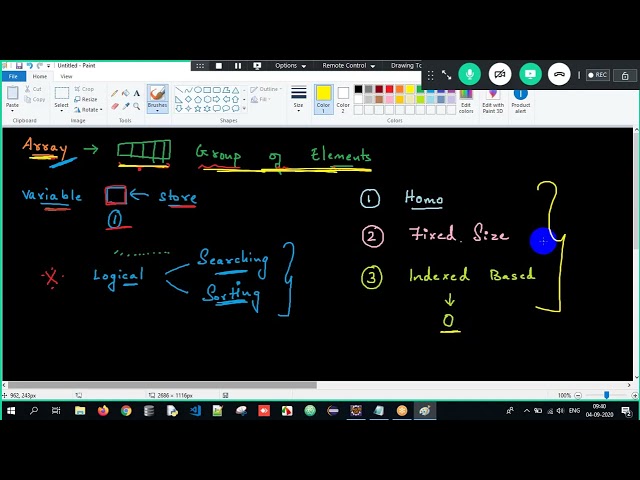 Untitled - Paint
Options
Remote Control
Drawing To
REC
File
Home
View
Paste
Select
Crop
Resize
Rotate
Brushes
Outline
Fill
Size
Color 1
Color 2
Edit colors
Edit with Paint 3D
Product alert
Clipboard
Image
Tools
Shapes
Colors
Array → Group of Elements
Variable ← store
1
Logical
Searching
Sorting
1 Homo
2 Fixed Size
3 Indexed Based
↓
0
962, 243px
2686 × 1116px
100%
ENG
09:40
04-09-2020